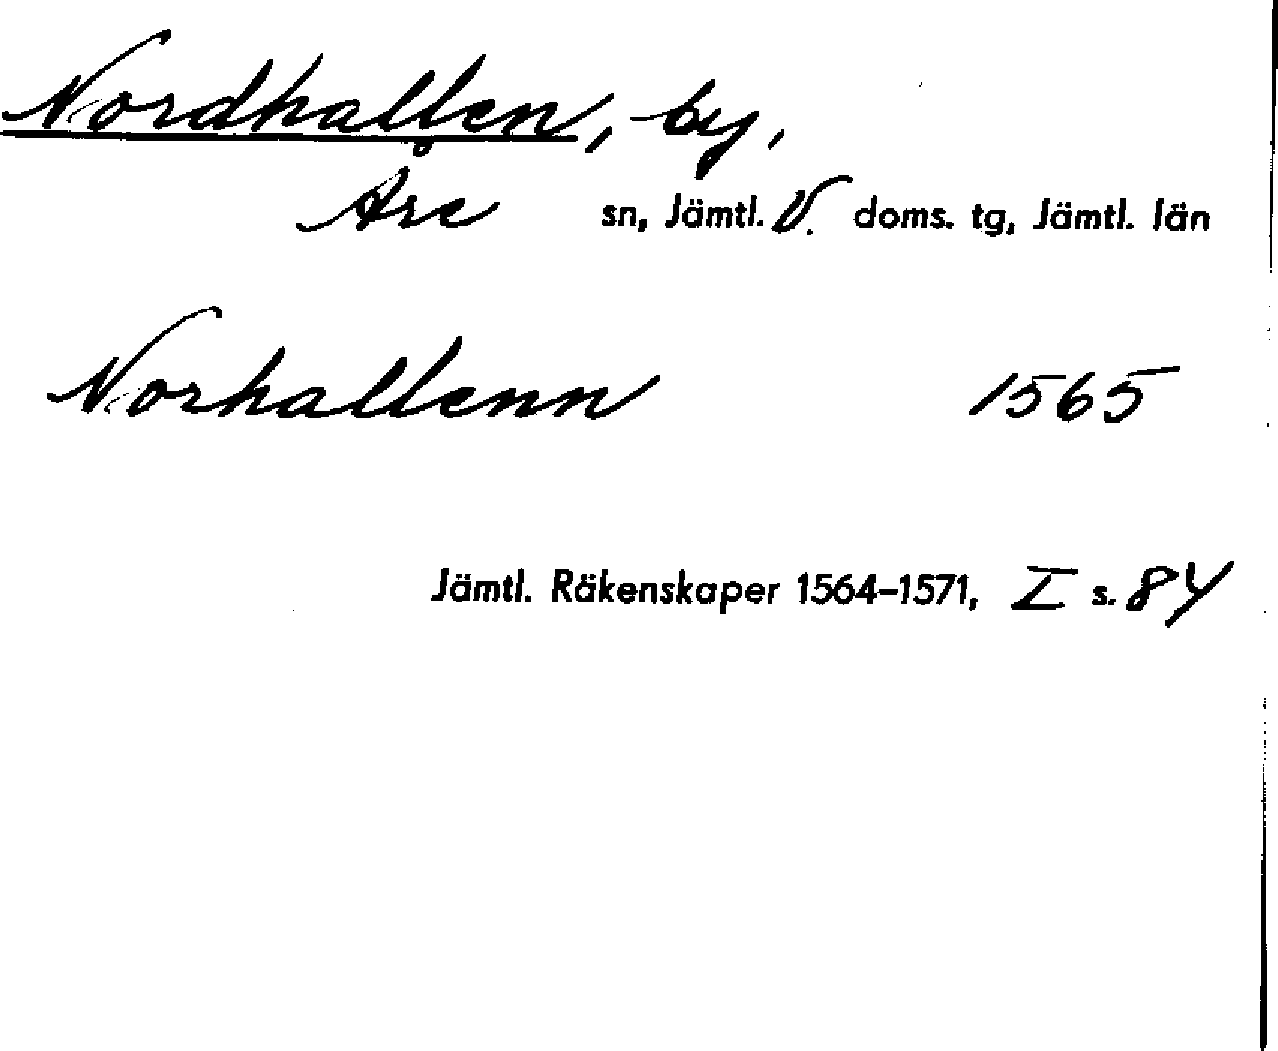 Nordhallen, by,
Åre sn, Jämtl. V. doms. tg, Jämtl. län
Norhallenn 1565
Jämtl. Räkenskaper 1564-1571, I s. 84